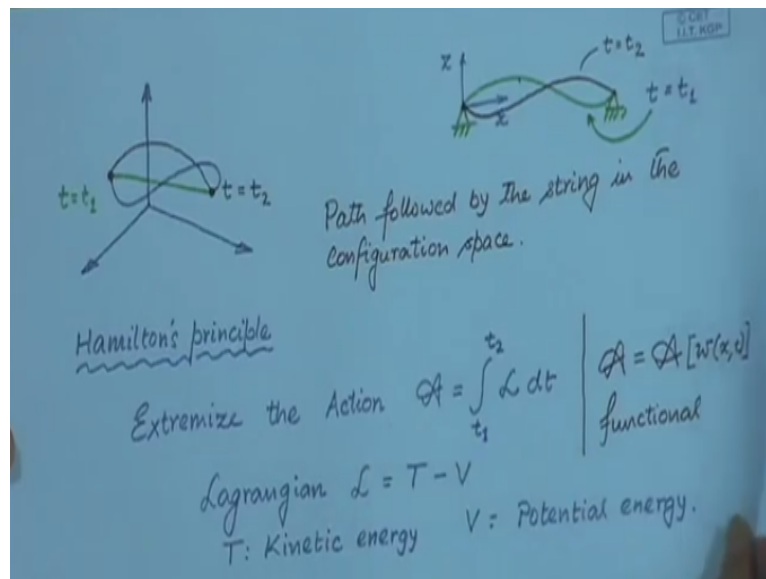 © CET
I.I.T. KGP
t=t₂
z
x
t = t₁
t=t₁
t=t₂
Path followed by the string in the
configuration space.
Hamilton's principle
Extremize the Action A = ∫_{t₁}^{t₂} L dt
A = A[w(x,t)]
functional
Lagrangian L = T - V
T: Kinetic energy V: Potential energy.